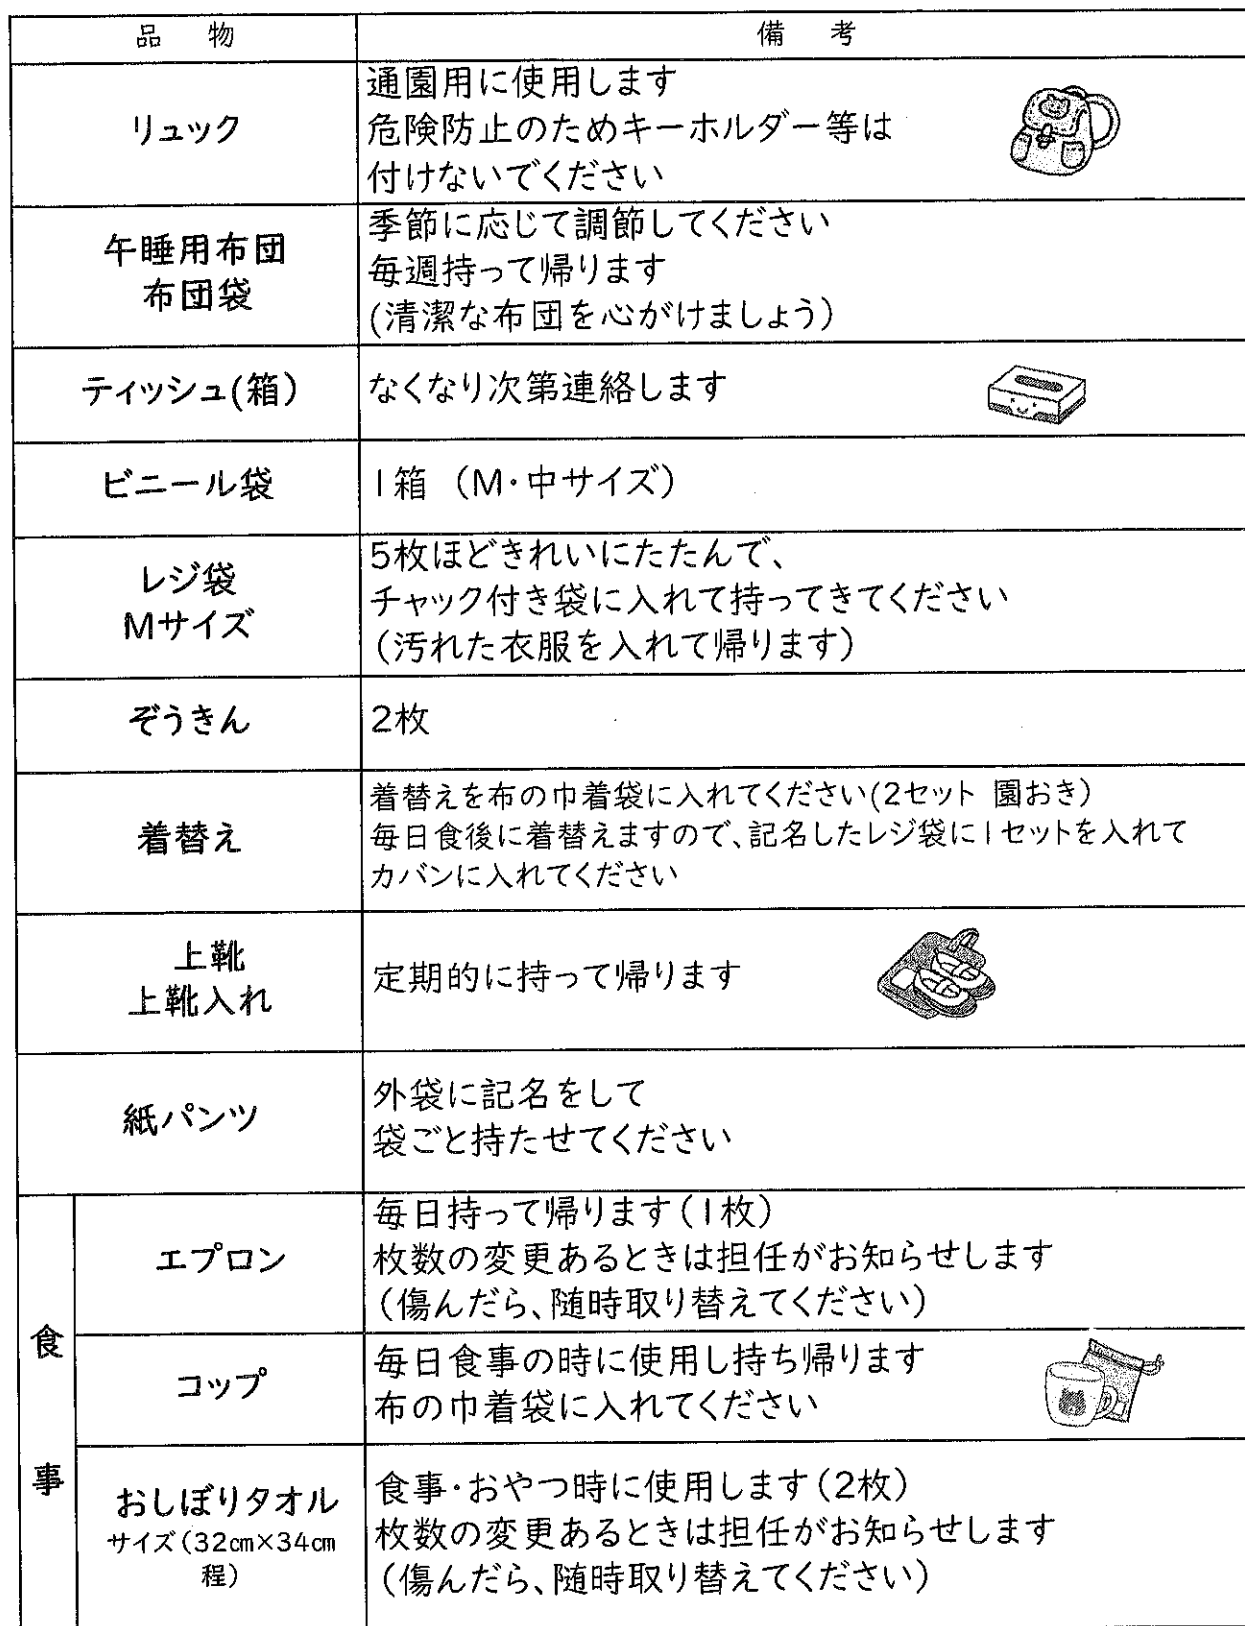 品 物 備 考
リュック
通園用に使用します
危険防止のためキーホルダー等は
付けないでください
午睡用布団
布団袋
季節に応じて調節してください
毎週持って帰ります
(清潔な布団を心がけましょう)
ティッシュ(箱)
なくなり次第連絡します
ビニール袋
1箱 (M・中サイズ)
レジ袋
Mサイズ
5枚ほどきれいにたたんで、
チャック付き袋に入れて持ってきてください
(汚れた衣服を入れて帰ります)
ぞうきん
2枚
着替え
着替えを布の巾着袋に入れてください(2セット 園おき)
毎日食後に着替えますので、記名したレジ袋に1セットを入れて
カバンに入れてください
上靴
上靴入れ
定期的に持って帰ります
紙パンツ
外袋に記名をして
袋ごと持たせてください
食事
エプロン
毎日持って帰ります(1枚)
枚数の変更あるときは担任がお知らせします
(傷んだら、随時取り替えてください)
コップ
毎日食事の時に使用し持ち帰ります
布の巾着袋に入れてください
おしぼりタオル
サイズ(32㎝×34㎝
程)
食事・おやつ時に使用します(2枚)
枚数の変更あるときは担任がお知らせします
(傷んだら、随時取り替えてください)